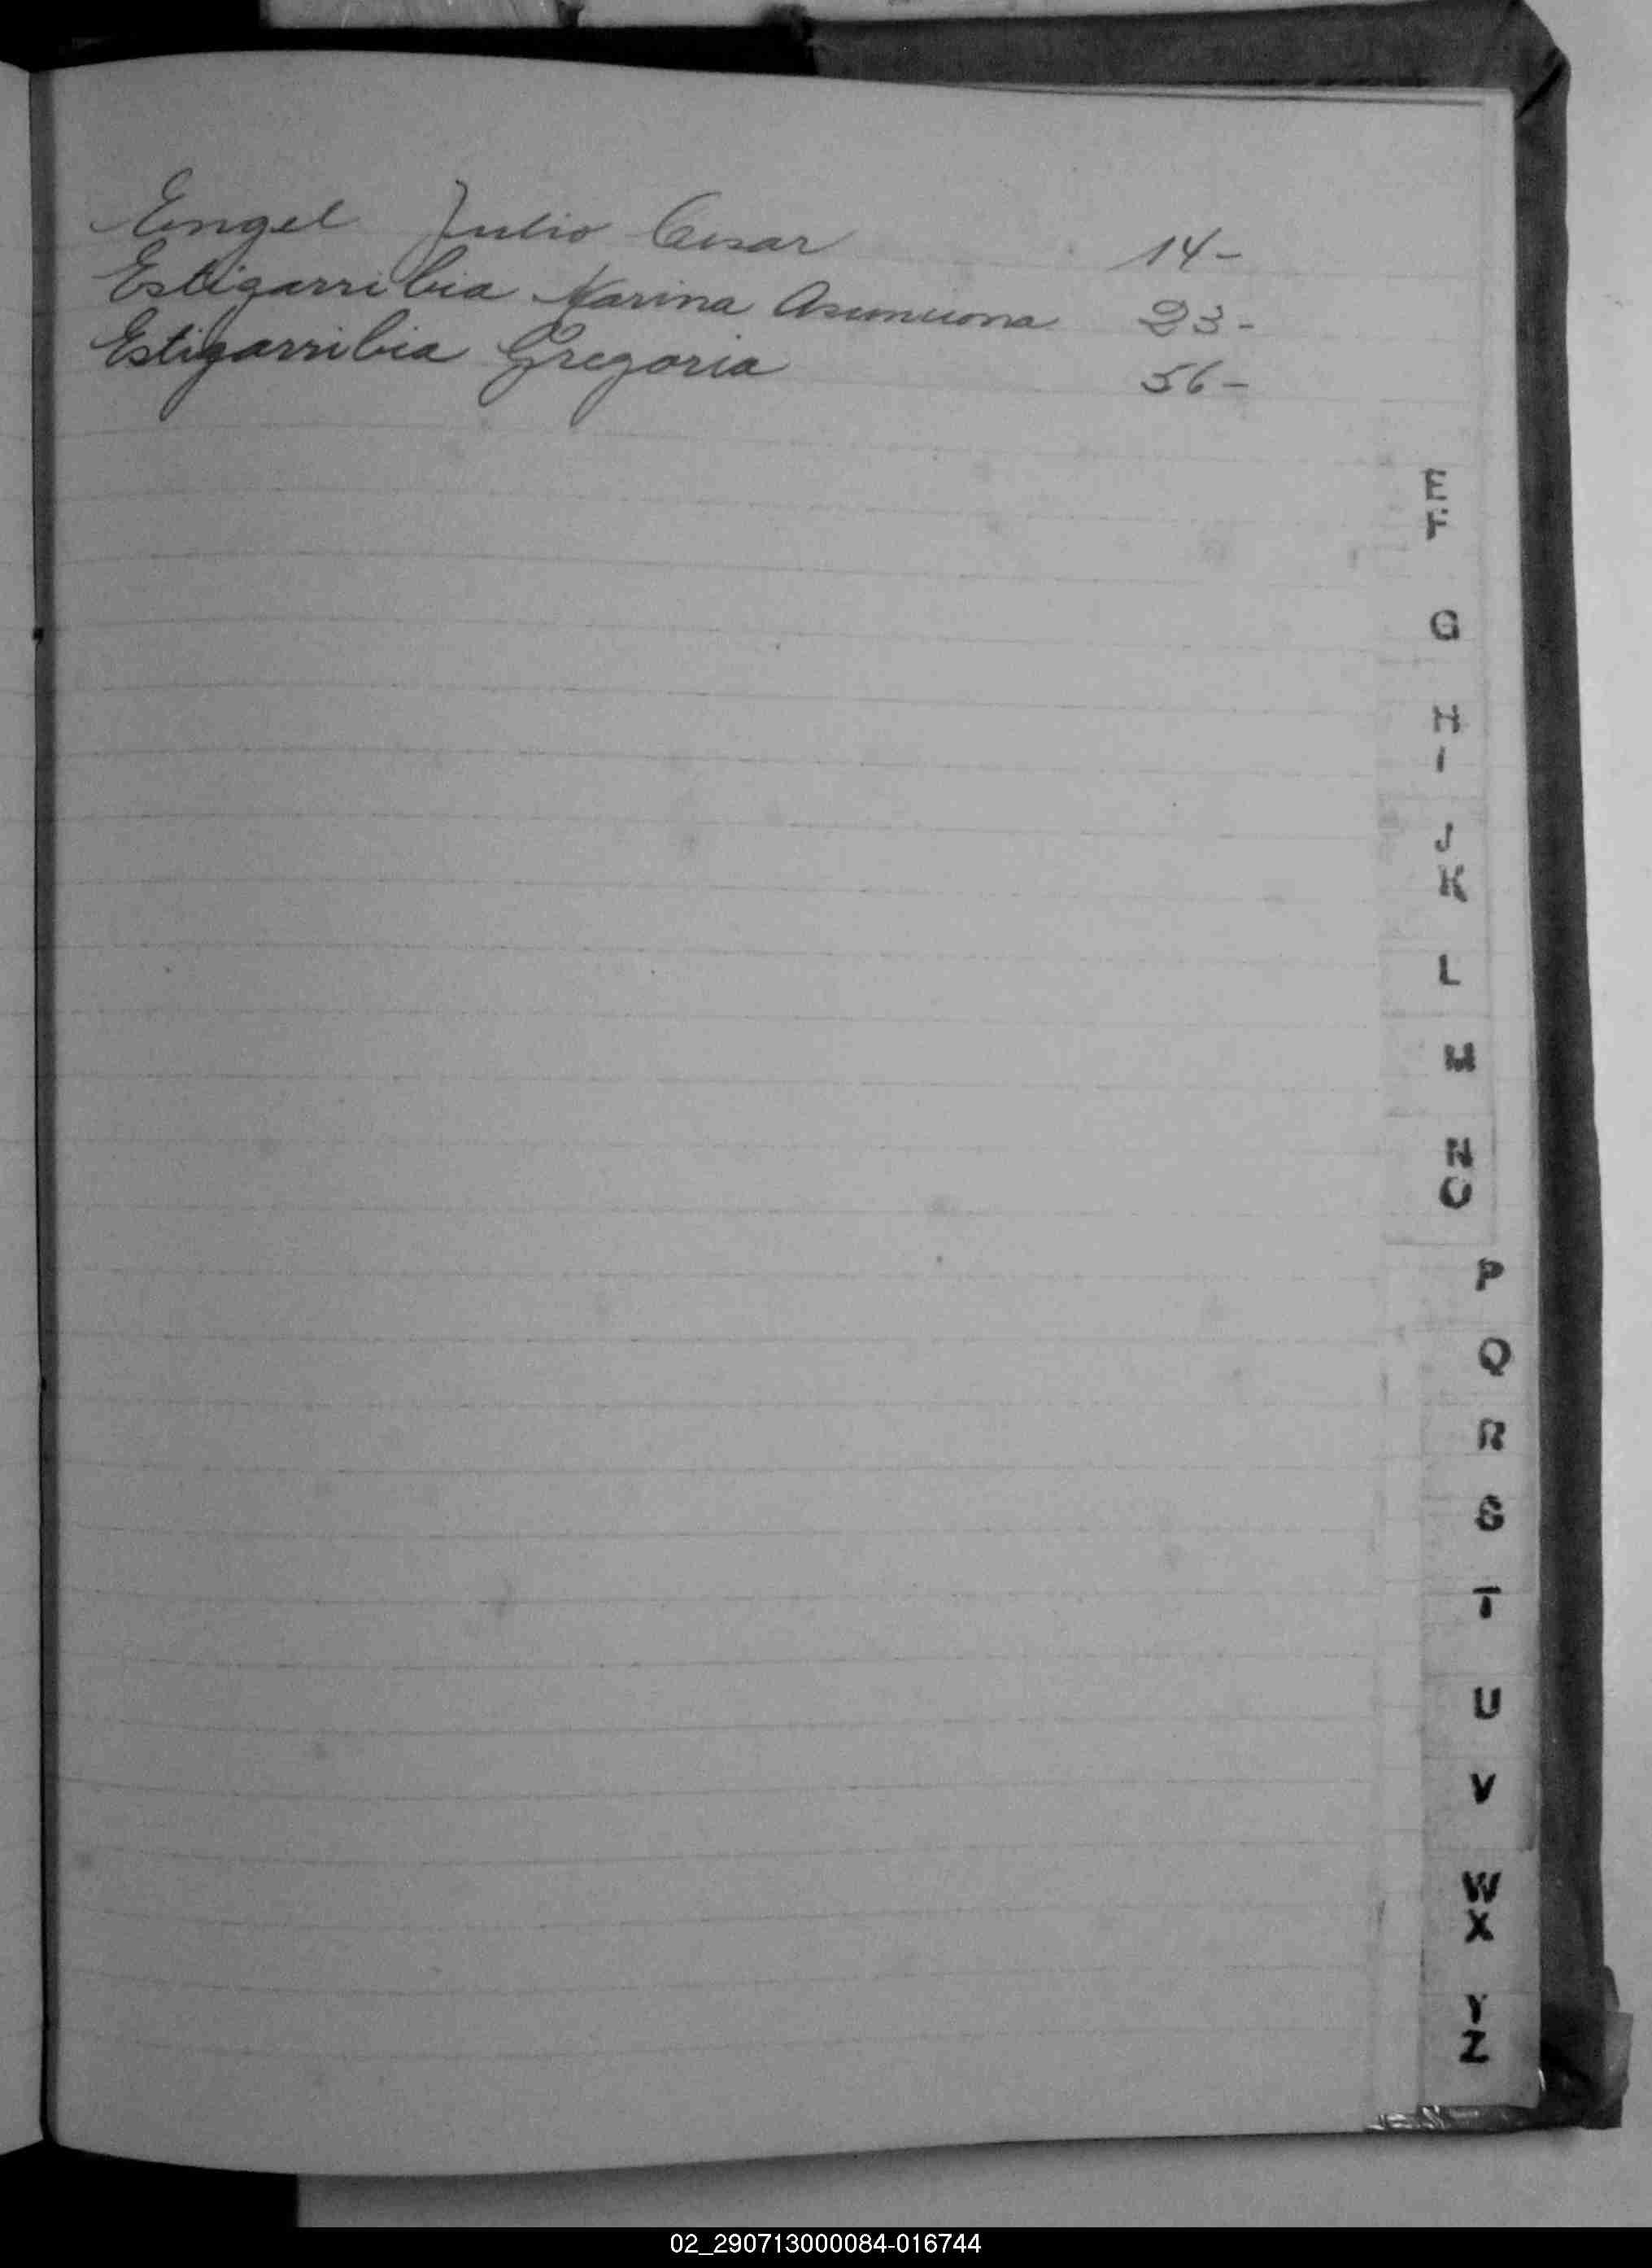 Engel Julio Cesar 14-
Estigarribia Karina Asunciona 23-
Estigarribia Gregoria 56-
E
F
G
H
I
J
K
L
M
N
O
P
Q
R
S
T
U
V
W
X
Y
Z
02_290713000084-016744